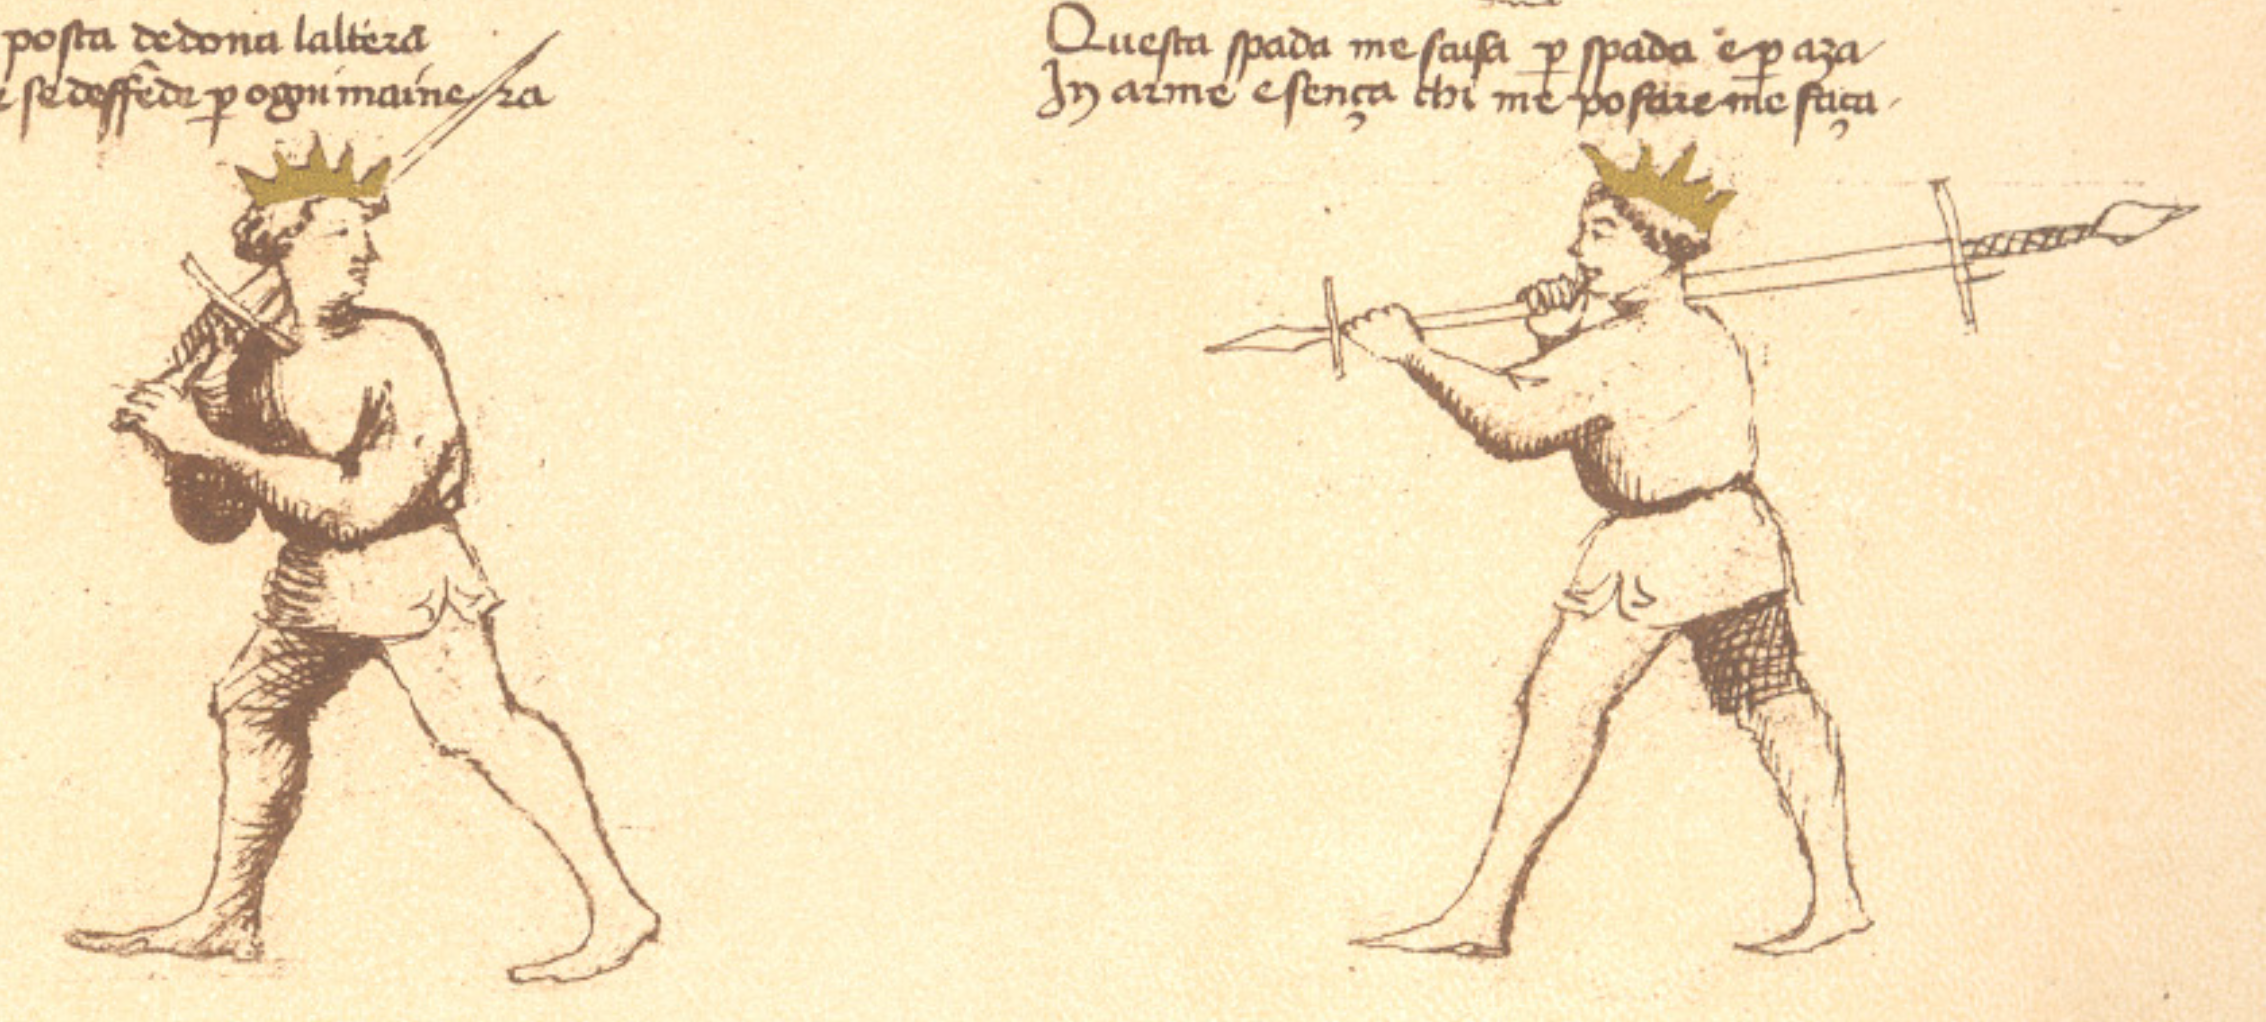 posta dedona laltera
se deffẽdr p ogni maine ra
Questa spada me scusa p spada e p aza
In arme e sença chi me po fare me faça